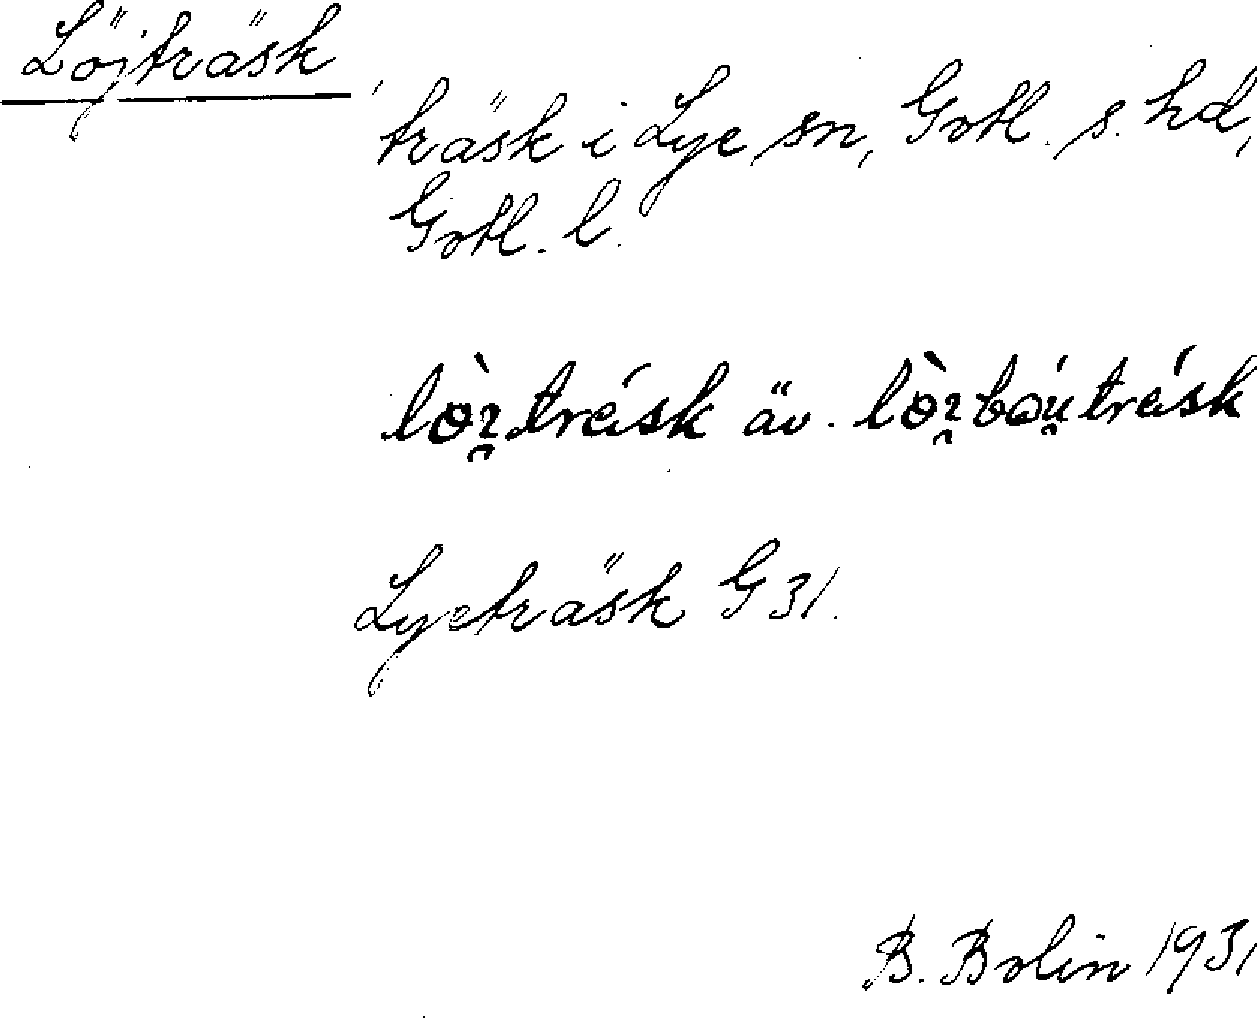 Löjträsk
träsk i Lye sn, Gotl. s. hd,
Gotl. l.
äv.
Lyeträsk G 31.
B. Bolin 1931